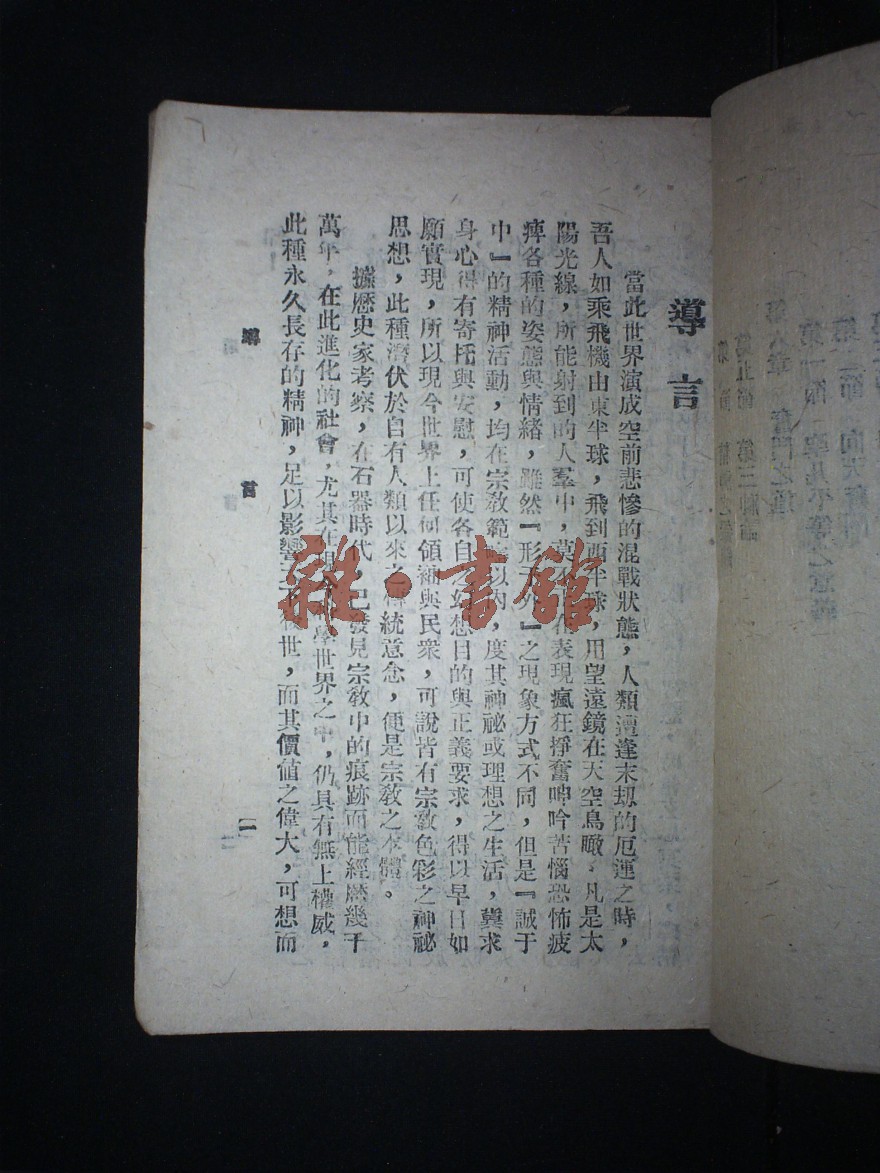 導言
當此世界演成空前悲慘的混戰狀態，人類遭逢末刼的厄運之時，
吾人如乘飛機由東半球，飛到西半球，用望遠鏡在天空鳥瞰，凡是太
陽光線，所能射到的人羣中，莫不表現瘋狂掙奮呻吟苦惱恐怖疲
痺各種的姿態與情緒，雖然『形于外』之現象方式不同，但是『誠于
中』的精神活動，均在宗教範以內，度其神祕或理想之生活，冀求
身心得有寄托與安慰，可使各自之幻想目的與正義要求，得以早日如
願實現，所以現今世界上任何領袖與民衆，可說皆有宗敎色彩之神祕
思想，此種潛伏於自有人類以來之傳統意念，便是宗敎之本體。
據歷史家考察，在石器時代，已發見宗敎中的痕跡而能經歷幾千
萬年，在此進化的社會，尤其在學世界之中，仍具有無上權威，
此種永久長存的精神，足以影響世，而其價値之偉大，可想而
導言
一
雜·書館
第五節 第三